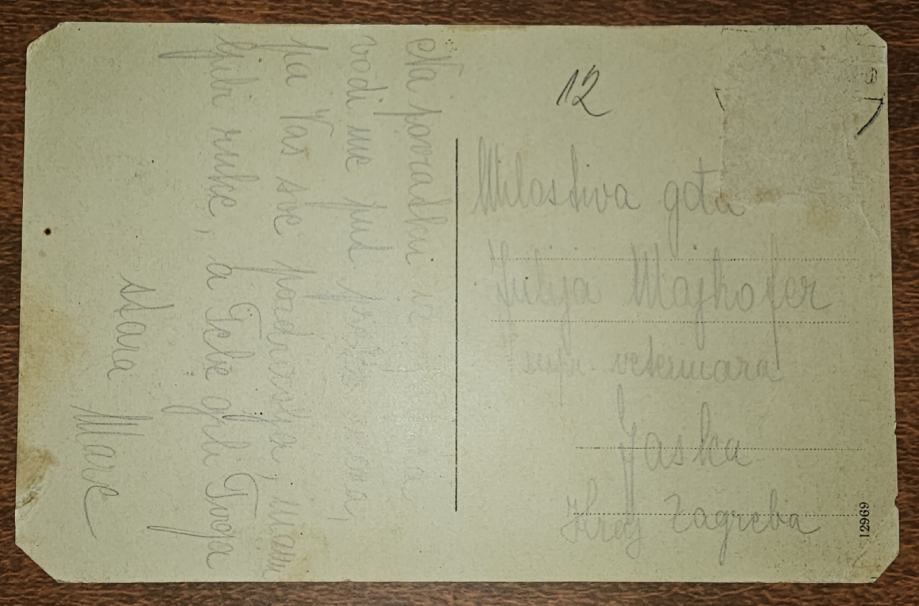 Na povratku iz
vodi me put
pa Vas sve pozdravlja, mami
ljubi ruke, a Tebe grli Tvoja
stara Mare
12
Milostiva gđa
Julija Majhofer
supr. veterinara
Jaska
kraj Zagreba
12969